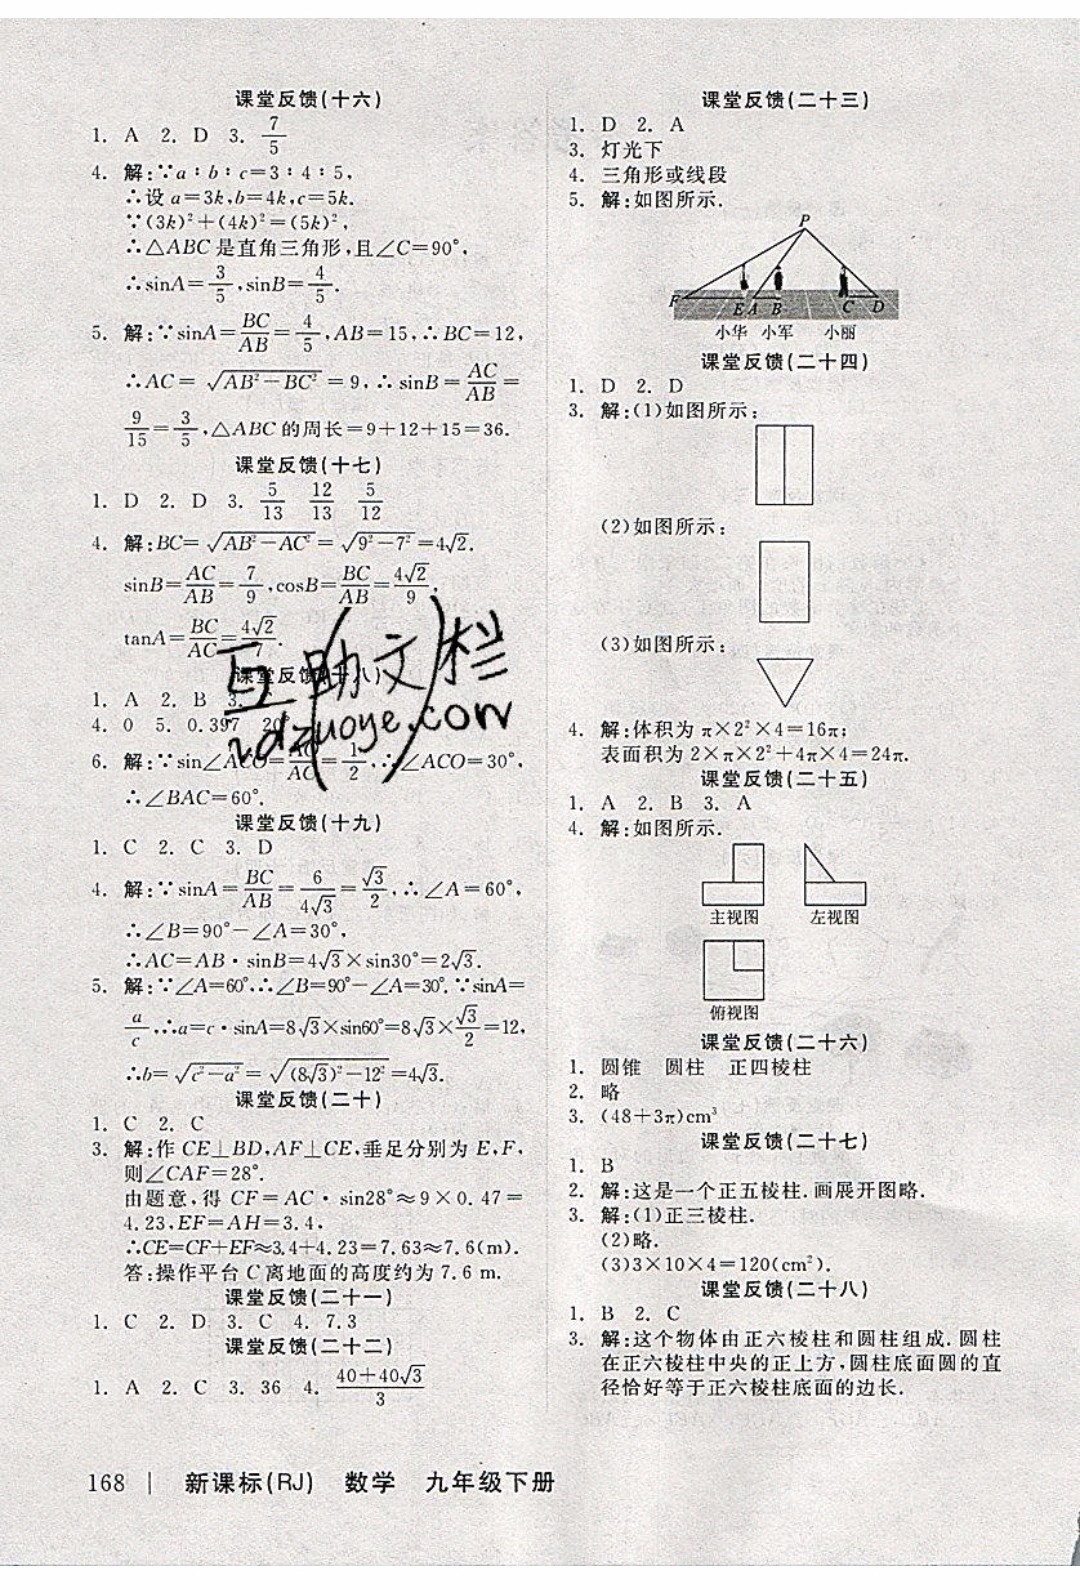 课堂反馈(十六)
1. A 2. D 3. 7/5
4. 解:∵a∶b∶c=3∶4∶5,
∴设 a=3k,b=4k,c=5k.
∵(3k)²+(4k)²=(5k)²,
∴△ABC 是直角三角形,且∠C=90°,
∴sinA=3/5,sinB=4/5.
5. 解:∵sinA=BC/AB=4/5,AB=15,∴BC=12,
∴AC=√(AB²-BC²)=9,∴sinB=AC/AB=
9/15=3/5,△ABC 的周长=9+12+15=36.
课堂反馈(十七)
1. D 2. D 3. 5/13 12/13 5/12
4. 解:BC=√(AB²-AC²)=√(9²-7²)=4√2.
sinB=AC/AB=7/9,cosB=BC/AB=4√2/9,
tanA=BC/AC=4√2/7.
互助文栏
课堂反馈(十八)
1. A 2. B 3.
4. 0 5. 0.397 20°
zdzuoye.com
6. 解:∵sin∠ACO=AO/AC=1/2,∴∠ACO=30°,
∴∠BAC=60°.
课堂反馈(十九)
1. C 2. C 3. D
4. 解:∵sinA=BC/AB=6/4√3=√3/2,∴∠A=60°,
∴∠B=90°-∠A=30°,
∴AC=AB·sinB=4√3×sin30°=2√3.
5. 解:∵∠A=60°,∴∠B=90°-∠A=30°.∵sinA=
a/c,∴a=c·sinA=8√3×sin60°=8√3×√3/2=12,
∴b=√(c²-a²)=√((8√3)²-12²)=4√3.
课堂反馈(二十)
1. C 2. C
3. 解:作 CE⊥BD,AF⊥CE,垂足分别为 E,F,
则∠CAF=28°.
由题意,得 CF=AC·sin28°≈9×0.47=
4.23,EF=AH=3.4,
∴CE=CF+EF≈3.4+4.23=7.63≈7.6(m).
答:操作平台 C 离地面的高度约为 7.6 m.
课堂反馈(二十一)
1. C 2. D 3. C 4. 7.3
课堂反馈(二十二)
1. A 2. C 3. 36 4. (40+40√3)/3
课堂反馈(二十三)
1. D 2. A
3. 灯光下
4. 三角形或线段
5. 解:如图所示.
P
F E A B C D
小华 小军 小丽
课堂反馈(二十四)
1. D 2. D
3. 解:(1)如图所示:
(2)如图所示:
(3)如图所示:
4. 解:体积为 π×2²×4=16π;
表面积为 2×π×2²+4π×4=24π.
课堂反馈(二十五)
1. A 2. B 3. A
4. 解:如图所示.
主视图 左视图
俯视图
课堂反馈(二十六)
1. 圆锥 圆柱 正四棱柱
2. 略
3. (48+3π)cm³
课堂反馈(二十七)
1. B
2. 解:这是一个正五棱柱.画展开图略.
3. 解:(1)正三棱柱.
(2)略.
(3)3×10×4=120(cm²).
课堂反馈(二十八)
1. B 2. C
3. 解:这个物体由正六棱柱和圆柱组成.圆柱
在正六棱柱中央的正上方,圆柱底面圆的直
径恰好等于正六棱柱底面的边长.
168 | 新课标(RJ) 数学 九年级下册